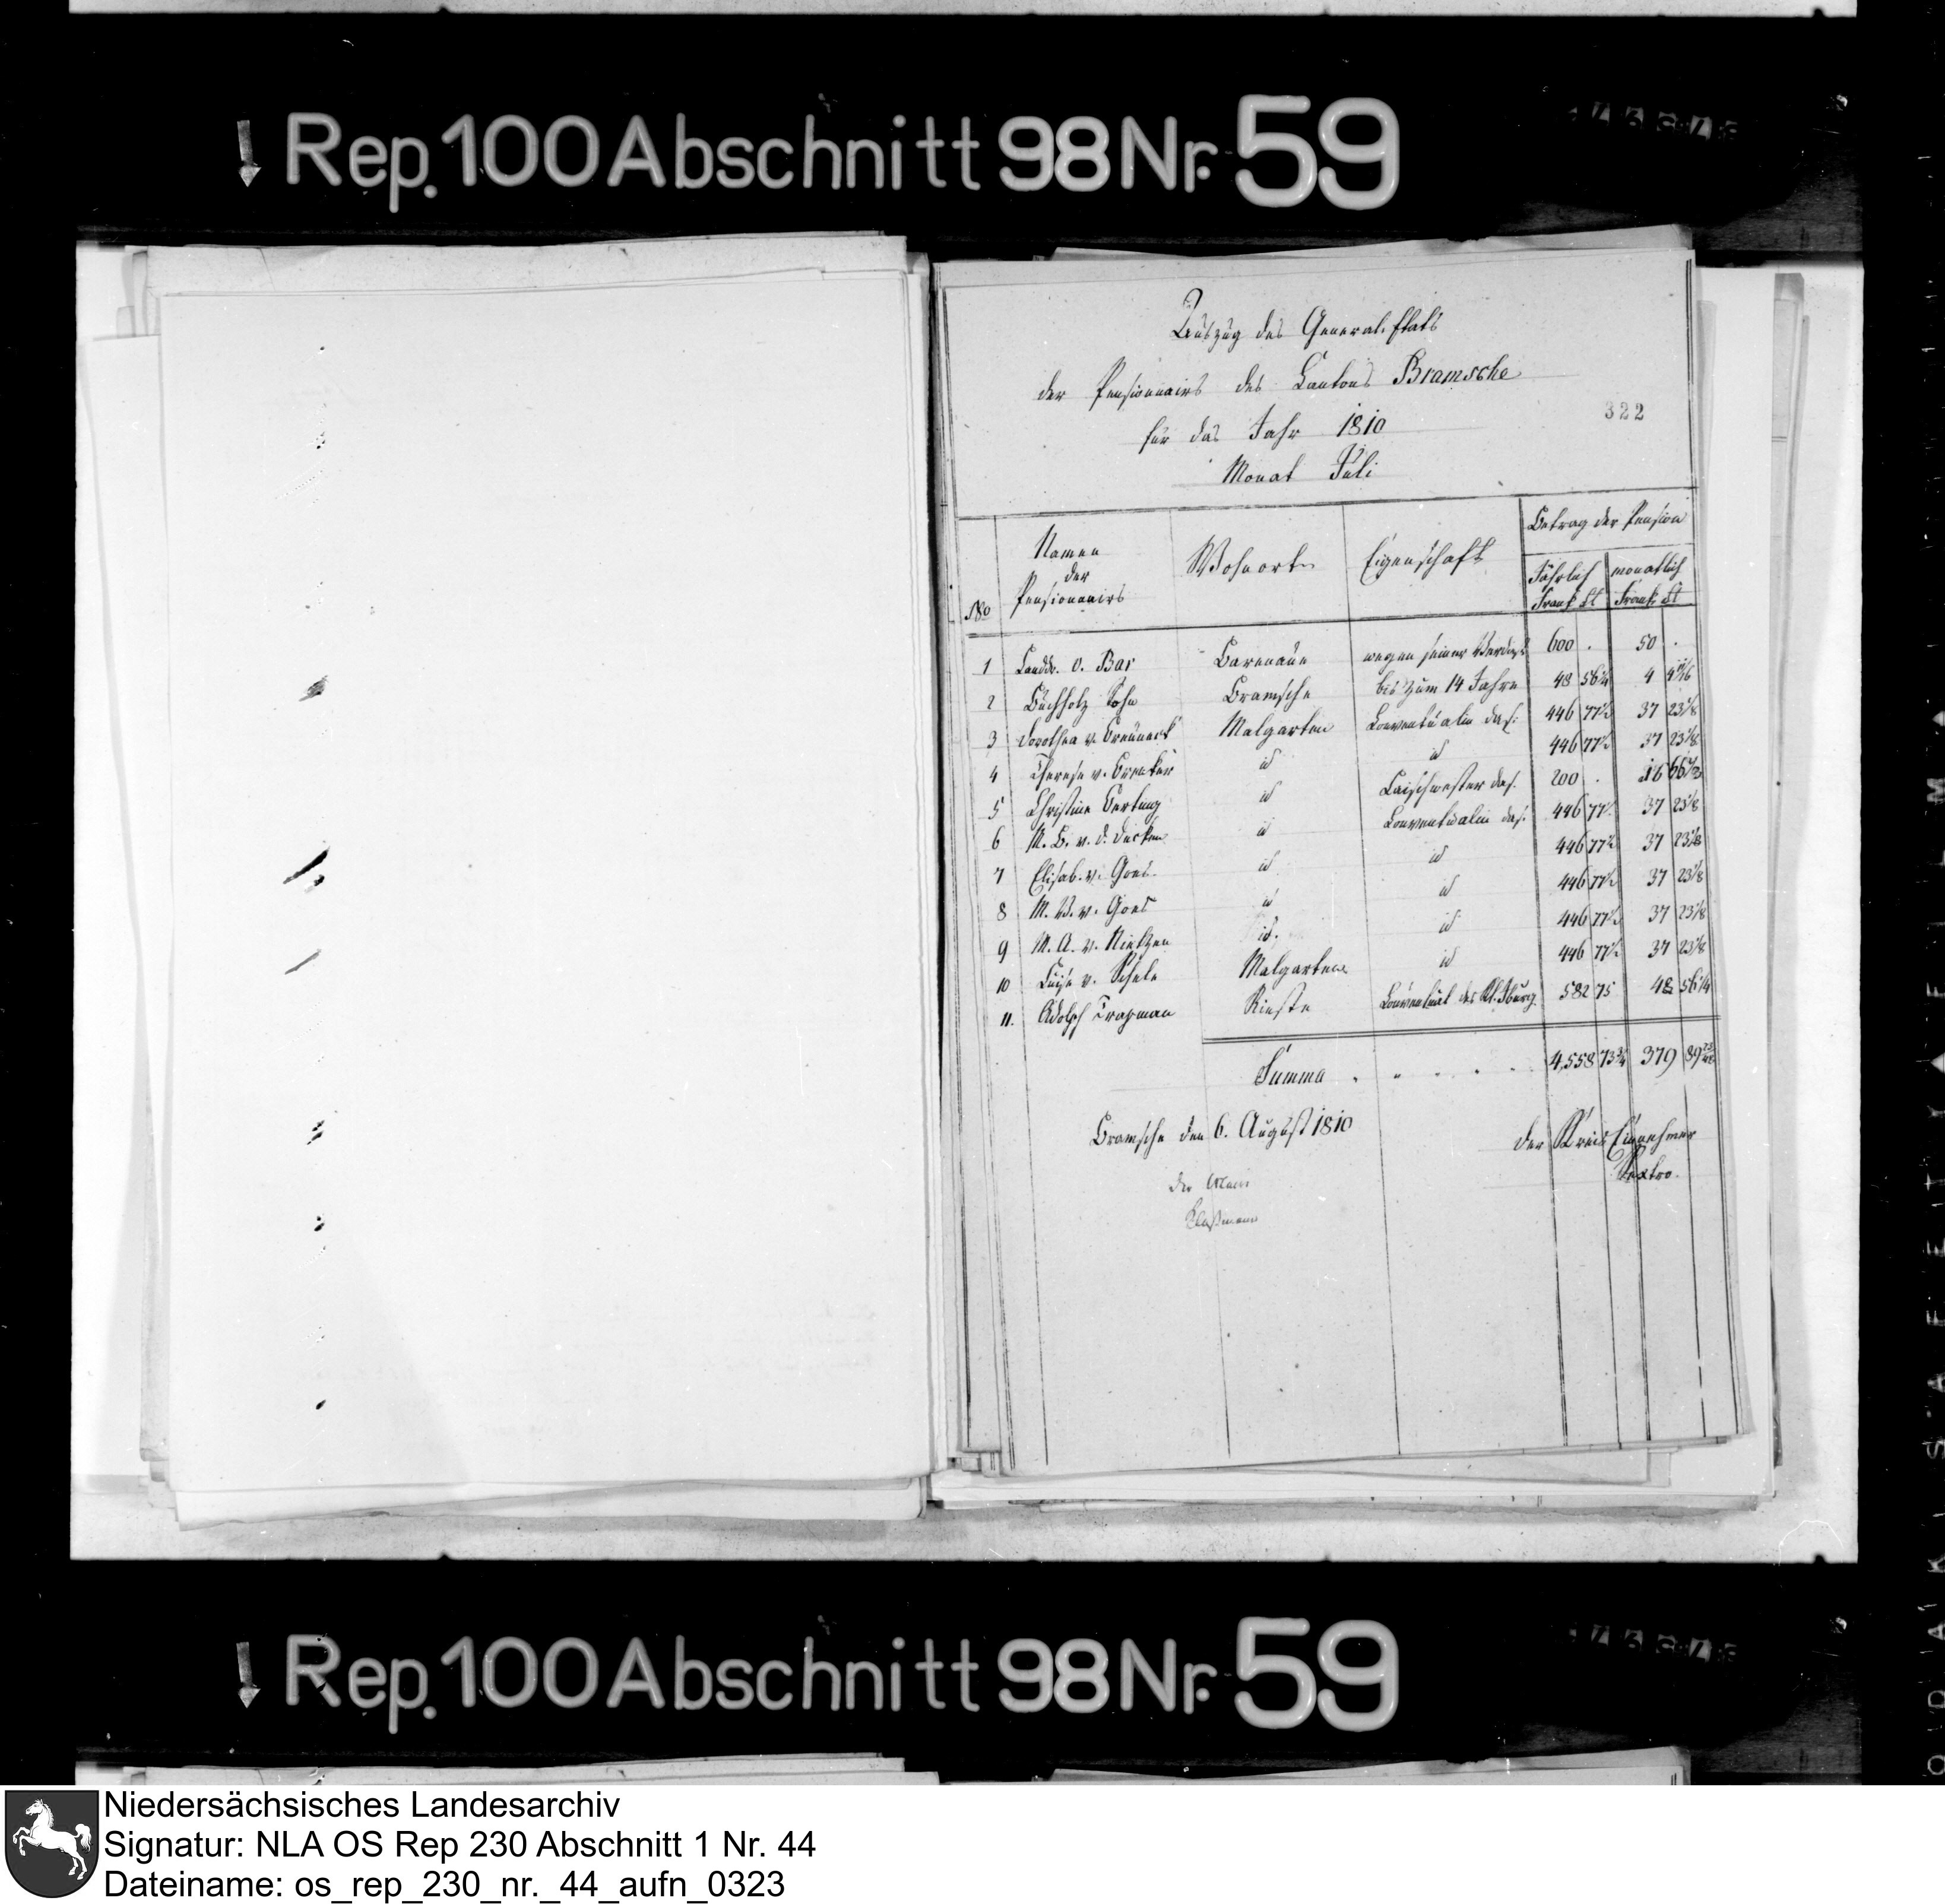 Rep. 100 Abschnitt 98 Nr. 59
Auszug des General-Etats
der Pensionnairs des Cantons Bramsche
322
für das Jahr 1810
Monat Juli
Betrag der Pension
No Namen der Pensionnairs Wohnort Eigenschaft Jährlich Frank Ct monatlich Frank Ct
1 Landdr. v. Bar Barenaue wegen seiner 600 . 50 .
2 Buchholz Sohn Bramsche bis zum 14 Jahre 48 56 1/4 4 4 11/16
3 Dorothea v. Malgarten Conventualin das: 446 77 1/2 37 23 1/8
4 Therese v. id id 446 77 1/2 37 23 1/8
5 Christine id Laischwester das. 200 . 16 66 2/3
6 M. B. v. d. Decken id Conventualin das: 446 77 1/2 37 23 1/8
7 Elisab. v. Goes id id 446 77 1/2 37 23 1/8
8 M. v. Goes id id 446 77 1/2 37 23 1/8
9 M. A. v. id. id 446 77 1/2 37 23 1/8
10 Luise v. Schele Malgarten id 446 77 1/2 37 23 1/8
11. Adolph Trapman Rieste Conventual des Kl. Iburg 582 75 48 56 1/4
Summa 4,558 73 3/4 379 89
Bramsche den 6. August 1810
der Kreis Einnehmer
Der Maire
Rep. 100 Abschnitt 98 Nr. 59
Niedersächsisches Landesarchiv
Signatur: NLA OS Rep 230 Abschnitt 1 Nr. 44
Dateiname: os_rep_230_nr._44_aufn_0323